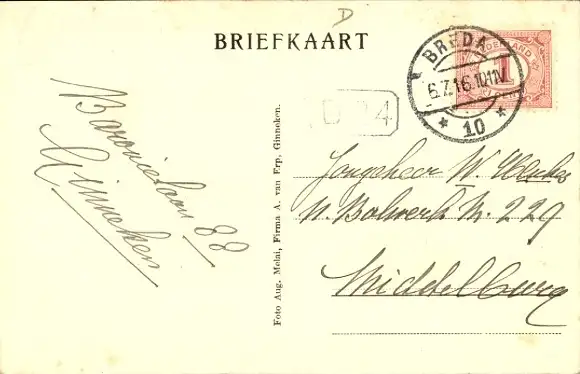 D
BRIEFKAART
BREDA
6.7.16.10-11V
* 10 *
NEDERLAND
1
Baronielaan 88
Ginneken
Foto Aug. Melai, Firma A. van Erp, Ginneken.
Jongeheer W.
N. Bolwerk Nr. 229
Middelburg